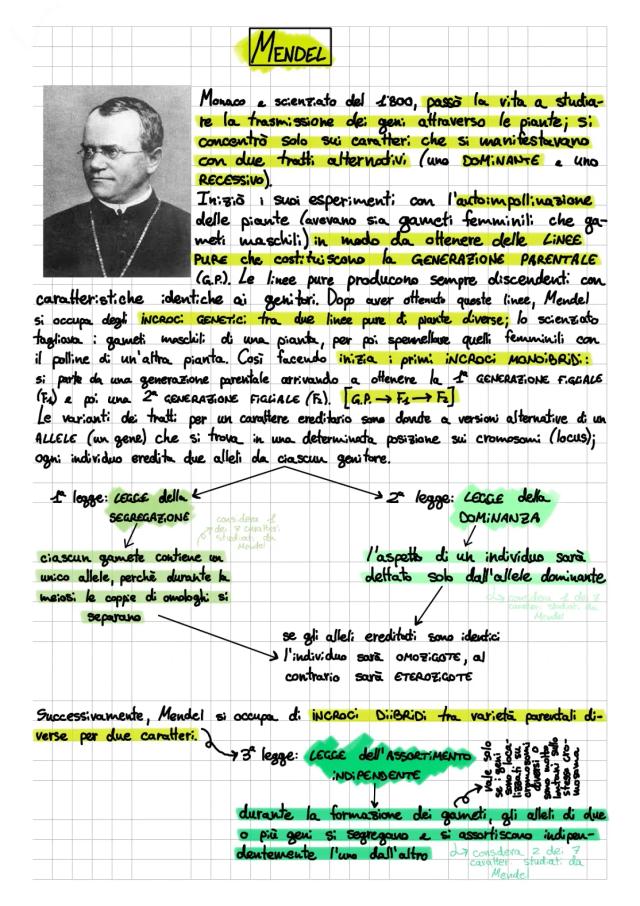 MENDEL
Monaco e scienziato del 1800, passò la vita a studia-
re la trasmissione dei geni attraverso le piante; si
concentrò solo sui caratteri che si manifestavano
con due tratti alternativi (uno DOMINANTE e uno
RECESSIVO).
Iniziò i suoi esperimenti con l'autoimpollinazione
delle piante (avevano sia gameti femminili che ga-
meti maschili) in modo da ottenere delle LINEE
PURE che costituiscono la GENERAZIONE PARENTALE
(G.P.). Le linee pure producono sempre discendenti con
caratteristiche identiche ai genitori. Dopo aver ottenuto queste linee, Mendel
si occupa degli INCROCI GENETICI tra due linee pure di piante diverse; lo scienziato
tagliava i gameti maschili di una pianta, per poi spennellare quelli femminili con
il polline di un'altra pianta. Così facendo inizia i primi INCROCI MONOIBRIDI:
si parte da una generazione parentale arrivando a ottenere la 1ª GENERAZIONE FIGLIALE
(F1) e poi una 2ª GENERAZIONE FIGLIALE (F2). [G.P. → F1 → F2]
Le varianti dei tratti per un carattere ereditario sono dovute a versioni alternative di un
ALLELE (un gene) che si trova in una determinata posizione sui cromosomi (locus);
ogni individuo eredita due alleli da ciascun genitore.
1ª legge: LEGGE della
SEGREGAZIONE
considera 1
dei 7 caratteri
studiati da
Mendel
ciascun gamete contiene un
unico allele, perchè durante la
meiosi le coppie di omologhi si
separano
2ª legge: LEGGE della
DOMINANZA
l'aspetto di un individuo sarà
dettato solo dall'allele dominante
considera 1 dei 7
caratteri studiati da
Mendel
se gli alleli ereditati sono identici
l'individuo sarà OMOZIGOTE, al
contrario sarà ETEROZIGOTE
Successivamente, Mendel si occupa di INCROCI DIIBRIDI tra varietà parentali di-
verse per due caratteri.
3ª legge: LEGGE dell'ASSORTIMENTO
INDIPENDENTE
vale solo
se i geni
sono loca-
lizzati su
cromosomi
diversi o
sono molto
lontani sullo
stesso cro-
mosoma
durante la formazione dei gameti, gli alleli di due
o più geni si segregano e si assortiscono indipen-
dentemente l'uno dall'altro
considera 2 dei 7
caratteri studiati da
Mendel